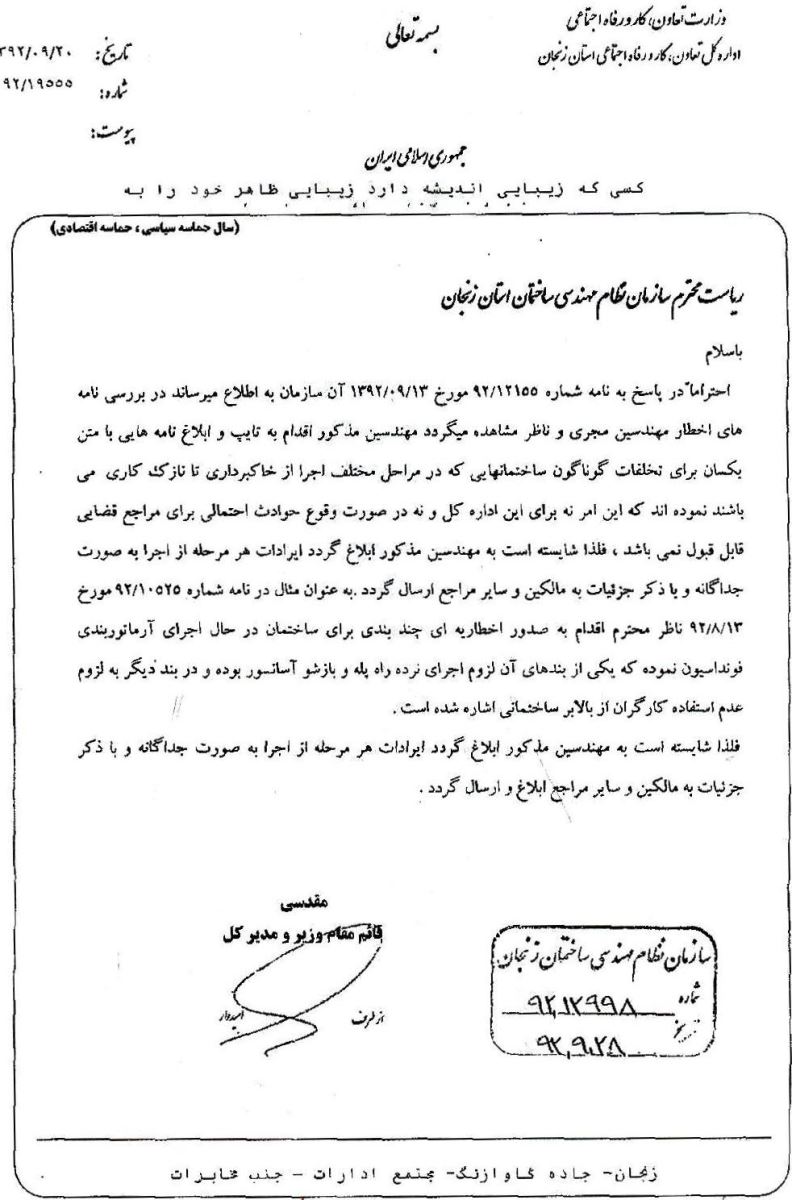 وزارت تعاون، کار و رفاه اجتماعی
اداره کل تعاون، کار و رفاه اجتماعی استان زنجان
بسمه تعالی
تاریخ: ۳۹۲/۰۹/۲۰
شماره: ۹۲/۱۹۵۵۵
پیوست:
جمهوری اسلامی ایران
کسی که زیبایی اندیشه دارد زیبایی ظاهر خود را به
(سال حماسه سیاسی ، حماسه اقتصادی)
ریاست محترم سازمان نظام مهندسی ساختمان استان زنجان
باسلام
احتراماً در پاسخ به نامه شماره ۹۲/۱۲۱۵۵ مورخ ۱۳۹۲/۰۹/۱۳ آن سازمان به اطلاع میرساند در بررسی نامه
های اخطار مهندسین مجری و ناظر مشاهده میگردد مهندسین مذکور اقدام به تایپ و ابلاغ نامه هایی با متن
یکسان برای تخلفات گوناگون ساختمانهایی که در مراحل مختلف اجرا از خاکبرداری تا نازک کاری می
باشند نموده اند که این امر نه برای این اداره کل و نه در صورت وقوع حوادث احتمالی برای مراجع قضایی
قابل قبول نمی باشد ، فلذا شایسته است به مهندسین مذکور ابلاغ گردد ایرادات هر مرحله از اجرا به صورت
جداگانه و با ذکر جزئیات به مالکین و سایر مراجع ارسال گردد .به عنوان مثال در نامه شماره ۹۲/۱۰۵۲۵ مورخ
۹۲/۸/۱۳ ناظر محترم اقدام به صدور اخطاریه ای چند بندی برای ساختمان در حال اجرای آرماتوربندی
فونداسیون نموده که یکی از بندهای آن لزوم اجرای نرده راه پله و بازشو آسانسور بوده و در بند دیگر به لزوم
عدم استفاده کارگران از بالابر ساختمانی اشاره شده است .
فلذا شایسته است به مهندسین مذکور ابلاغ گردد ایرادات هر مرحله از اجرا به صورت جداگانه و با ذکر
جزئیات به مالکین و سایر مراجع ابلاغ و ارسال گردد .
مقدسی
قائم مقام وزیر و مدیر کل
از طرف امیدوار
سازمان نظام مهندسی ساختمان زنجان
شماره ۹۲,۱۲۹۹۸
تاریخ ۹۲,۹,۲۸
زنجان- جاده گاوازنگ- مجتمع ادارات - جنب مخابرات